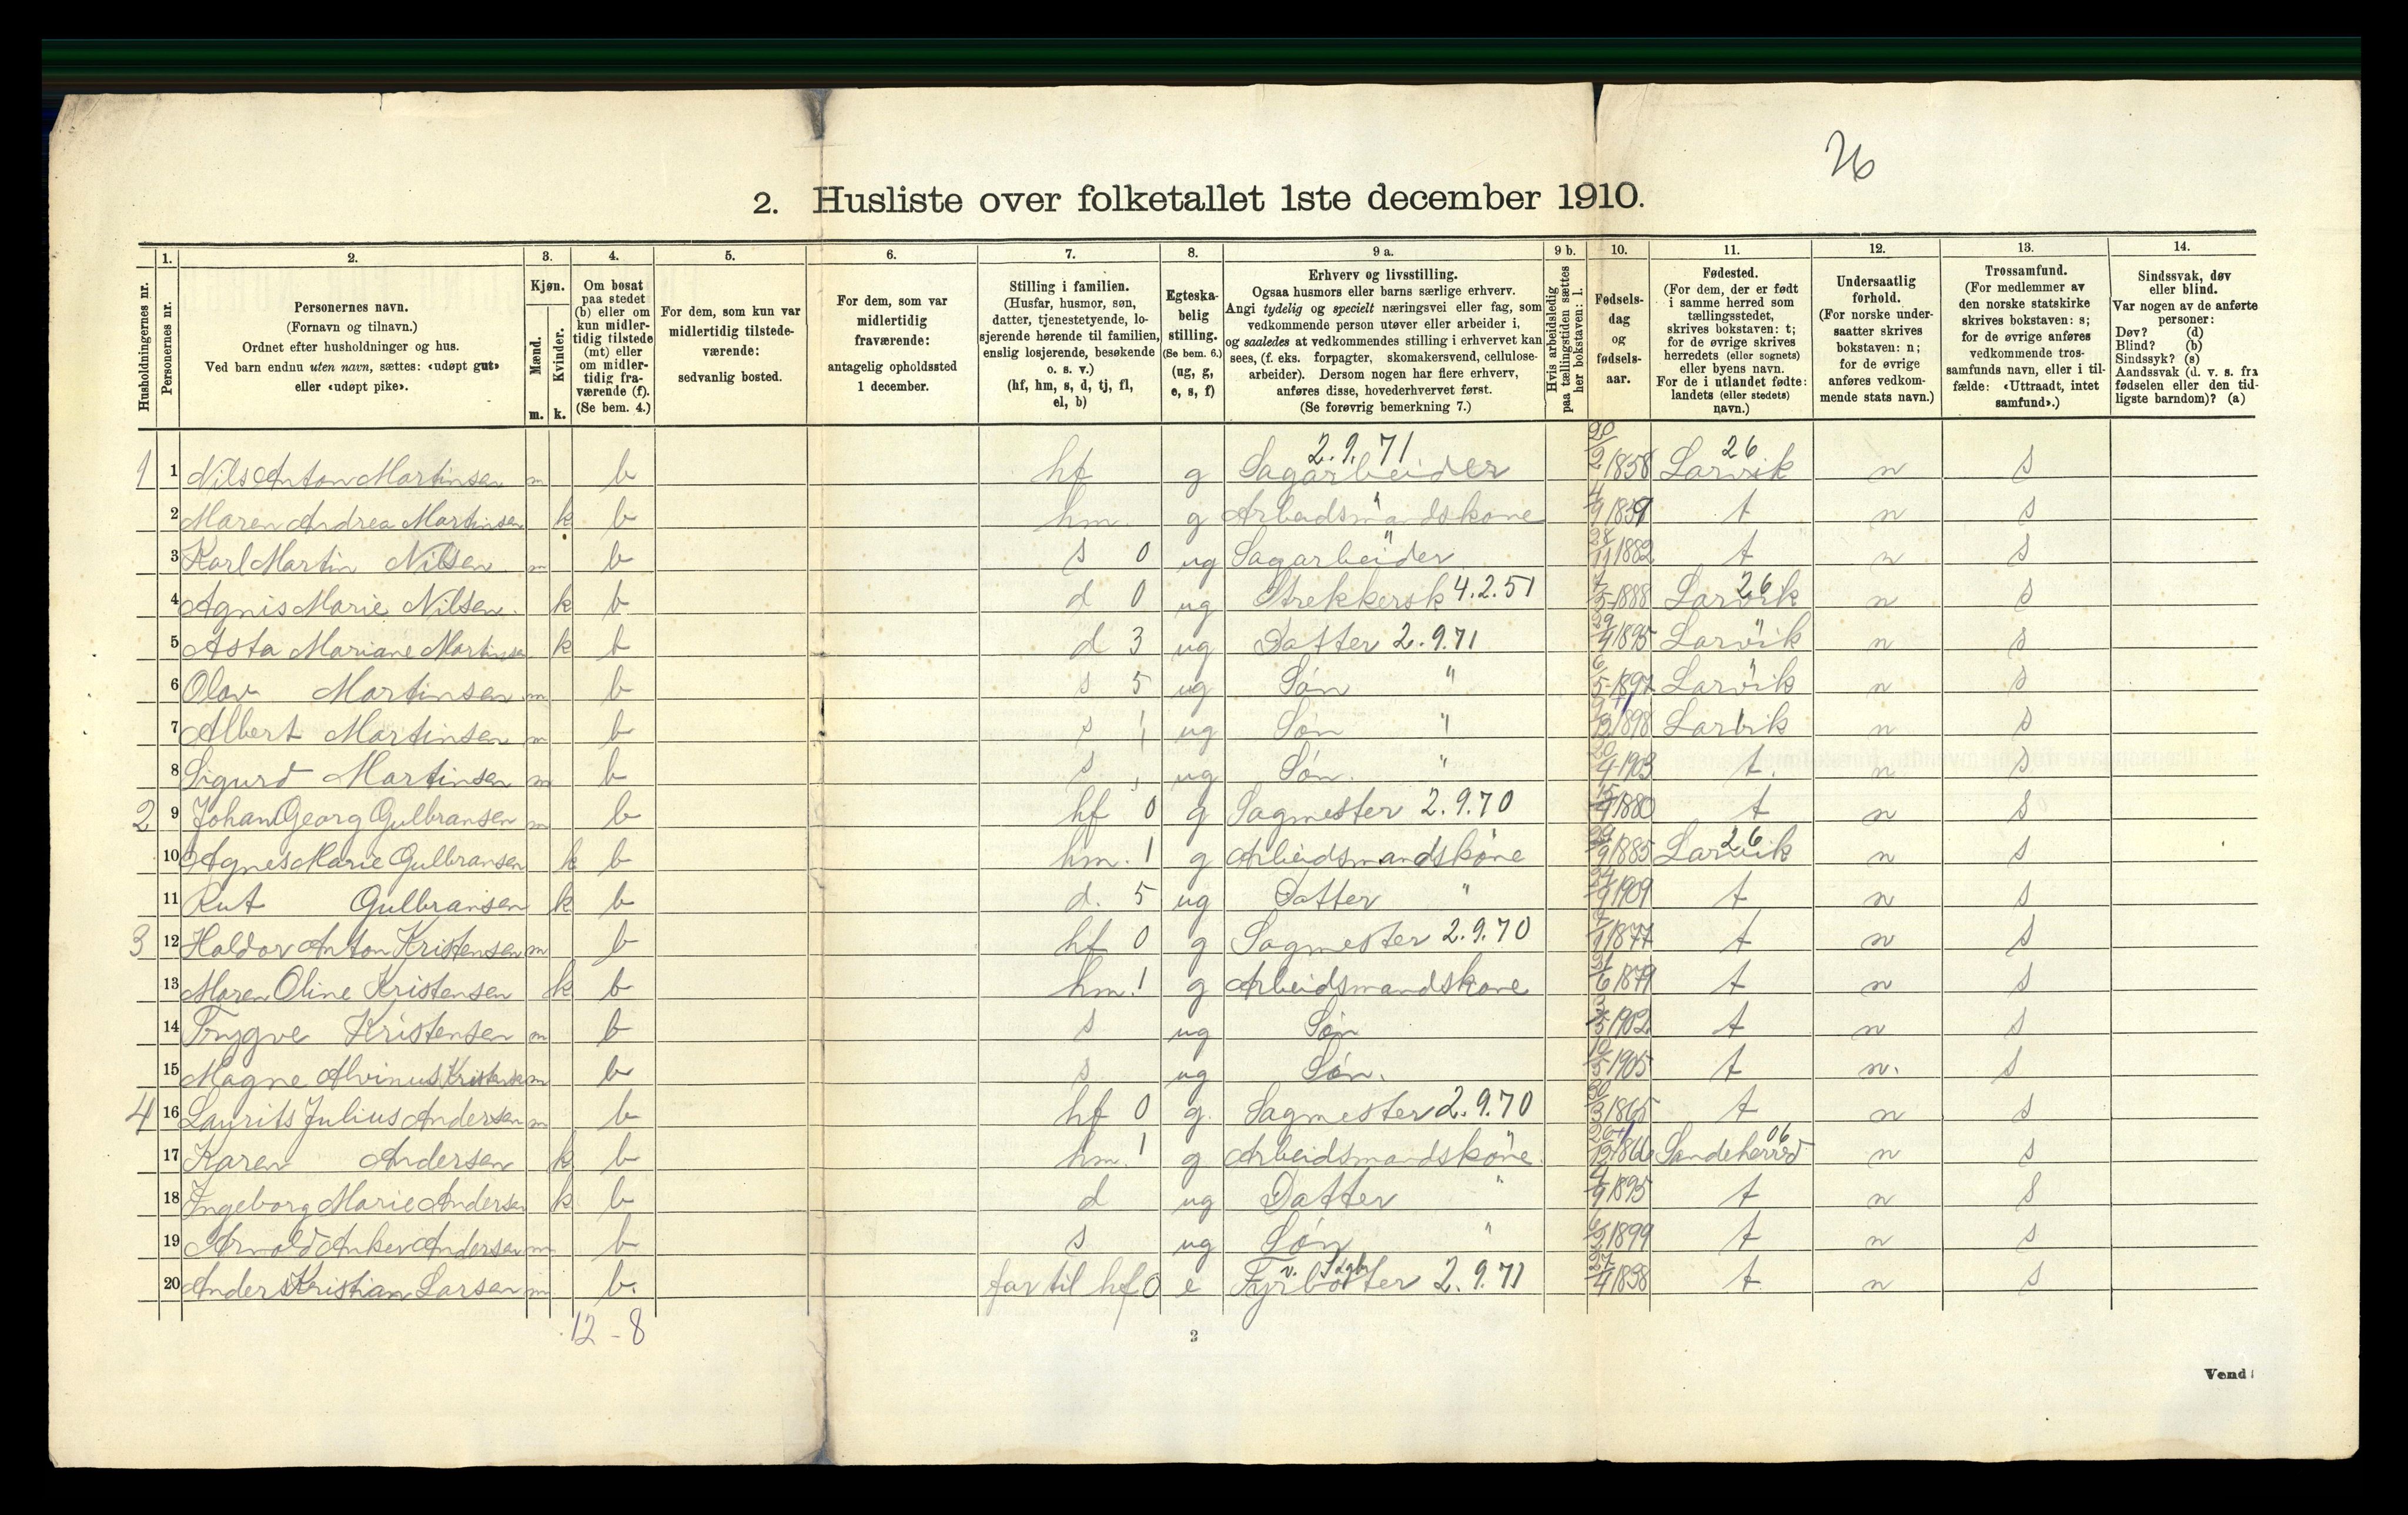 26
2. Husliste over folketallet 1ste december 1910.
1. 2. 3. 4. 5. 6. 7. 8. 9 a. 9 b. 10. 11. 12. 13. 14.
Husholdningernes nr.
Personernes nr.
Personernes navn.
(Fornavn og tilnavn.)
Ordnet efter husholdninger og hus.
Ved barn endnu uten navn, sættes: «udøpt gut»
eller «udøpt pike».
Kjøn.
Mænd.
Kvinder.
m. k.
Om bosat
paa stedet
(b) eller om
kun midler-
tidig tilstede
(mt) eller
om midler-
tidig fra-
værende (f).
(Se bem. 4.)
For dem, som kun var
midlertidig tilstede-
værende:
sedvanlig bosted.
For dem, som var
midlertidig
fraværende:
antagelig opholdssted
1 december.
Stilling i familien.
(Husfar, husmor, søn,
datter, tjenestetyende, lo-
sjerende hørende til familien,
enslig losjerende, besøkende
o. s. v.)
(hf, hm, s, d, tj, fl,
el, b)
Egteska-
belig
stilling.
(Se bem. 6.)
(ug, g,
e, s, f)
Erhverv og livsstilling.
Ogsaa husmors eller barns særlige erhverv.
Angi tydelig og specielt næringsvei eller fag, som
vedkommende person utøver eller arbeider i,
og saaledes at vedkommendes stilling i erhvervet kan
sees, (f. eks. forpagter, skomakersvend, cellulose-
arbeider). Dersom nogen har flere erhverv,
anføres disse, hovederhvervet først.
(Se forøvrig bemerkning 7.)
Hvis arbeidsledig
paa tællingstiden sættes
her bokstaven: l.
Fødsels-
dag
og
fødsels-
aar.
Fødested.
(For dem, der er født
i samme herred som
tællingsstedet,
skrives bokstaven: t;
for de øvrige skrives
herredets (eller sognets)
eller byens navn.
For de i utlandet fødte:
landets (eller stedets)
navn.)
Undersaatlig
forhold.
(For norske under-
saatter skrives
bokstaven: n;
for de øvrige
anføres vedkom-
mende stats navn.)
Trossamfund.
(For medlemmer av
den norske statskirke
skrives bokstaven: s;
for de øvrige anføres
vedkommende tros-
samfunds navn, eller i til-
fælde: «Uttraadt, intet
samfund».)
Sindssvak, døv
eller blind.
Var nogen av de anførte
personer:
Døv? (d)
Blind? (b)
Sindssyk? (s)
Aandssvak (d. v. s. fra
fødselen eller den tid-
ligste barndom)? (a)
1 1 Nils Anton Martinsen m b hf g Sagarbeider 2.9.71 20/2 1858 Larvik 26 n s
2 Maren Andrea Martinsen k b hm g Arbeidsmandskone " 4/9 1859 t n s
3 Karl Martin Nilsen m b s 0 ug Sagarbeider " 28/11 1882 t n s
4 Agnis Marie Nilsen. k b d 0 ug Strekkersk 4.2.51 1888 Larvik 26 n s
5 Asta Mariane Martinsen k b d 3 ug Datter 2.9.71 29/4 1895 Larvik " n s
6 Olav Martinsen m b s 5 ug Søn " 6/5 1897 Larvik " n s
7 Albert Martinsen m b s ug Søn " 1898 Larvik n s
8 Sigurd Martinsen m b s ug Søn. " 20/4 1903 t. n s
2 9 Johan Georg Gulbransen m b hf 0 g Sagmester 2.9.70 1880 t n s
10 Agnes Marie Gulbransen k b hm. 1 g Arbeidsmandskone 1885 Larvik 26 n s
11 Rut Gulbransen k b d. 5 ug Datter " 1909 t n s
3 12 Haldor Anton Kristensen m b hf 0 g Sagmester 2.9.70 1877 t n s
13 Maren Oline Kristensen k b hm. 1 g Arbeidsmandskone 1879 t n s
14 Trygve Kristensen m b s ug Søn 1902 t n s
15 Magne Alvinus Kristensen m b s ug Søn. 10/5 1905 t n. s
4 16 Laurits Julius Andersen m b hf 0 g. Sagmester 2.9.70 30/3 1865 t n s
17 Karen Andersen k b hm. 1 g Arbeidsmandskone. Sandeherred 06 n s
18 Ingeborg Marie Andersen k b d ug Datter " 4/9 1895 t n s
19 Arnold Anker Andersen m b s ug Søn " 1899 t n s
20 Anders Kristian Larsen m b. far til hf 0 e Fyrbøter v. 2.9.71 27/4 1838 t n s
12 - 8
2
Vend!